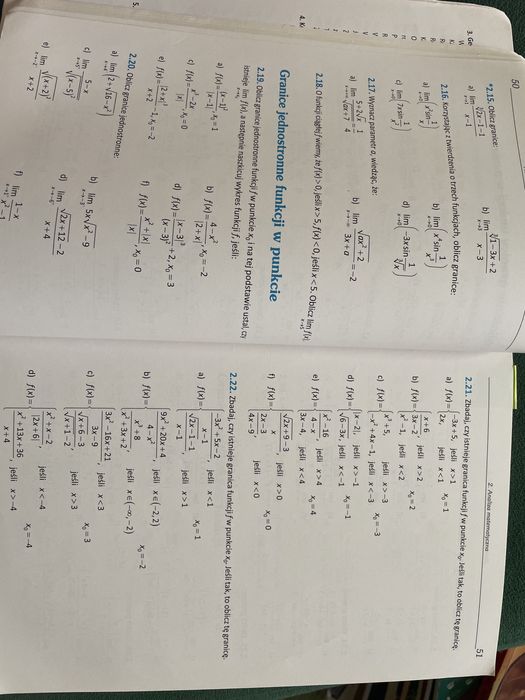 50
3. Ge
*2.15. Oblicz granice:
a) lim x→1 (∛(2x−1) − 1)/(x−1)
b) lim x→3 (∛(1−3x) + 2)/(x−3)
2.16. Korzystając z twierdzenia o trzech funkcjach, oblicz granice:
a) lim x→0 (x² sin 1/x)
b) lim x→0 (x⁴ sin 1/x²)
c) lim x→0 (7x sin 1/x²)
d) lim x→0 (−3x sin 1/∛x)
2.17. Wyznacz parametr a, wiedząc, że:
b) lim x→−∞ √(ax²+2)/(3x+a) = −2
2.18. O funkcji ciągłej f wiemy, że f(x) > 0, jeśli x > 5, f(x) < 0, jeśli x < 5. Oblicz lim x→5 f(x).
4. K
Granice jednostronne funkcji w punkcie
2.19. Oblicz granice jednostronne funkcji f w punkcie x₀ i na tej podstawie ustal, czy
istnieje lim x→x₀ f(x), a następnie naszkicuj wykres funkcji f, jeśli:
a) f(x) = (x−1)²/|x−1|, x₀ = 1
b) f(x) = (4−x²)/|2+x|, x₀ = −2
c) f(x) = (x²−2x)/|x|, x₀ = 0
d) f(x) = |x−3|³/(x−3)² + 2, x₀ = 3
e) f(x) = |2+x|/(x+2) − 1, x₀ = −2
f) f(x) = (x²+|x|)/|x|, x₀ = 0
2.20. Oblicz granice jednostronne:
b) lim 5x√(x²−9)
c) lim (5−x)/√((x−5)²)
d) lim (√(2x+12) − 2)/(x+4)
e) lim √((x+2)²)/(x+2)
f) lim (1−x)/(x²−1)
5.
2. Analiza matematyczna
51
2.21. Zbadaj, czy istnieje granica funkcji f w punkcie x₀. Jeśli tak, to oblicz tę granicę.
a) f(x) = { −3x+5, jeśli x > 1
2x, jeśli x < 1 x₀ = 1
b) f(x) = { (x+6)/(3x−2), jeśli x > 2
x²−1, jeśli x < 2 x₀ = 2
c) f(x) = { x²+5, jeśli x > −3
−x²+4x−1, jeśli x < −3 x₀ = −3
d) f(x) = { |x−2|, jeśli x > −1
√(6−3x), jeśli x < −1 x₀ = −1
e) f(x) = { (x²−16)/(4−x), jeśli x > 4
3x−4, jeśli x < 4 x₀ = 4
f) f(x) = { (√(2x+9) − 3)/x, jeśli x > 0
(2x−3)/(4x−9), jeśli x < 0 x₀ = 0
2.22. Zbadaj, czy istnieje granica funkcji f w punkcie x₀. Jeśli tak, to oblicz tę granicę.
a) f(x) = { (−3x²+5x−2)/(x−1), jeśli x < 1
(√(2x−1) − 1)/(x−1), jeśli x > 1 x₀ = 1
b) f(x) = { (9x²+20x+4)/(4−x²), jeśli x ∈ (−2, 2)
(x³+8)/(x²+3x+2), jeśli x ∈ (−∞, −2) x₀ = −2
c) f(x) = { (3x²−16x+21)/(3x−9), jeśli x < 3
(√(x+6) − 3)/(√(x+1) − 2), jeśli x > 3 x₀ = 3
d) f(x) = { (x²+x−2)/|2x+6|, jeśli x < −4
(x²+13x+36)/(x+4), jeśli x > −4 x₀ = −4